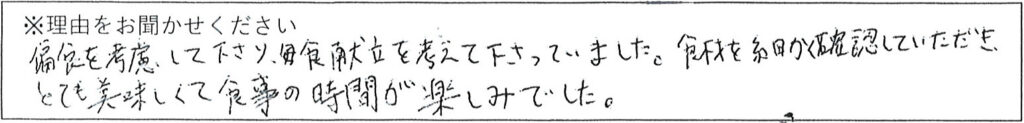 ※理由をお聞かせください
偏食を考慮して下さり、毎食献立を考えて下さっていました。食材を細かく確認していただき、
とても美味しくて食事の時間が楽しみでした。